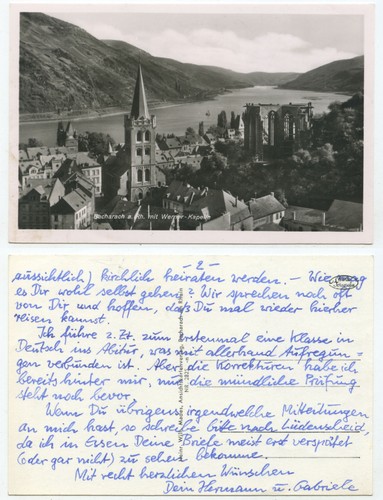 Bacharach a. Rh. mit Werner-Kapelle
- 2 -
aussichtlich) kirchlich heiraten werden. - Wie mag
es Dir wohl selbst gehen? Wir sprechen noch oft
von Dir und hoffen, daß Du mal wieder hierher
reisen kannst.
Ich führe z. Zt. zum erstenmal eine Klasse in
Deutsch ins Abitur, was mit allerhand Aufregun-
gen verbunden ist. Aber die Korrekturen habe ich
bereits hinter mir, nur die mündliche Prüfung
steht noch bevor.
Wenn Du übrigens irgendwelche Mitteilungen
an mich hast, so schreibe bitte nach Lüdenscheid,
da ich in Essen Deine Briefe meist erst verspätet
(oder gar nicht) zu sehen bekomme.
Mit recht herzlichen Wünschen
Dein Hermann u. Gabriele